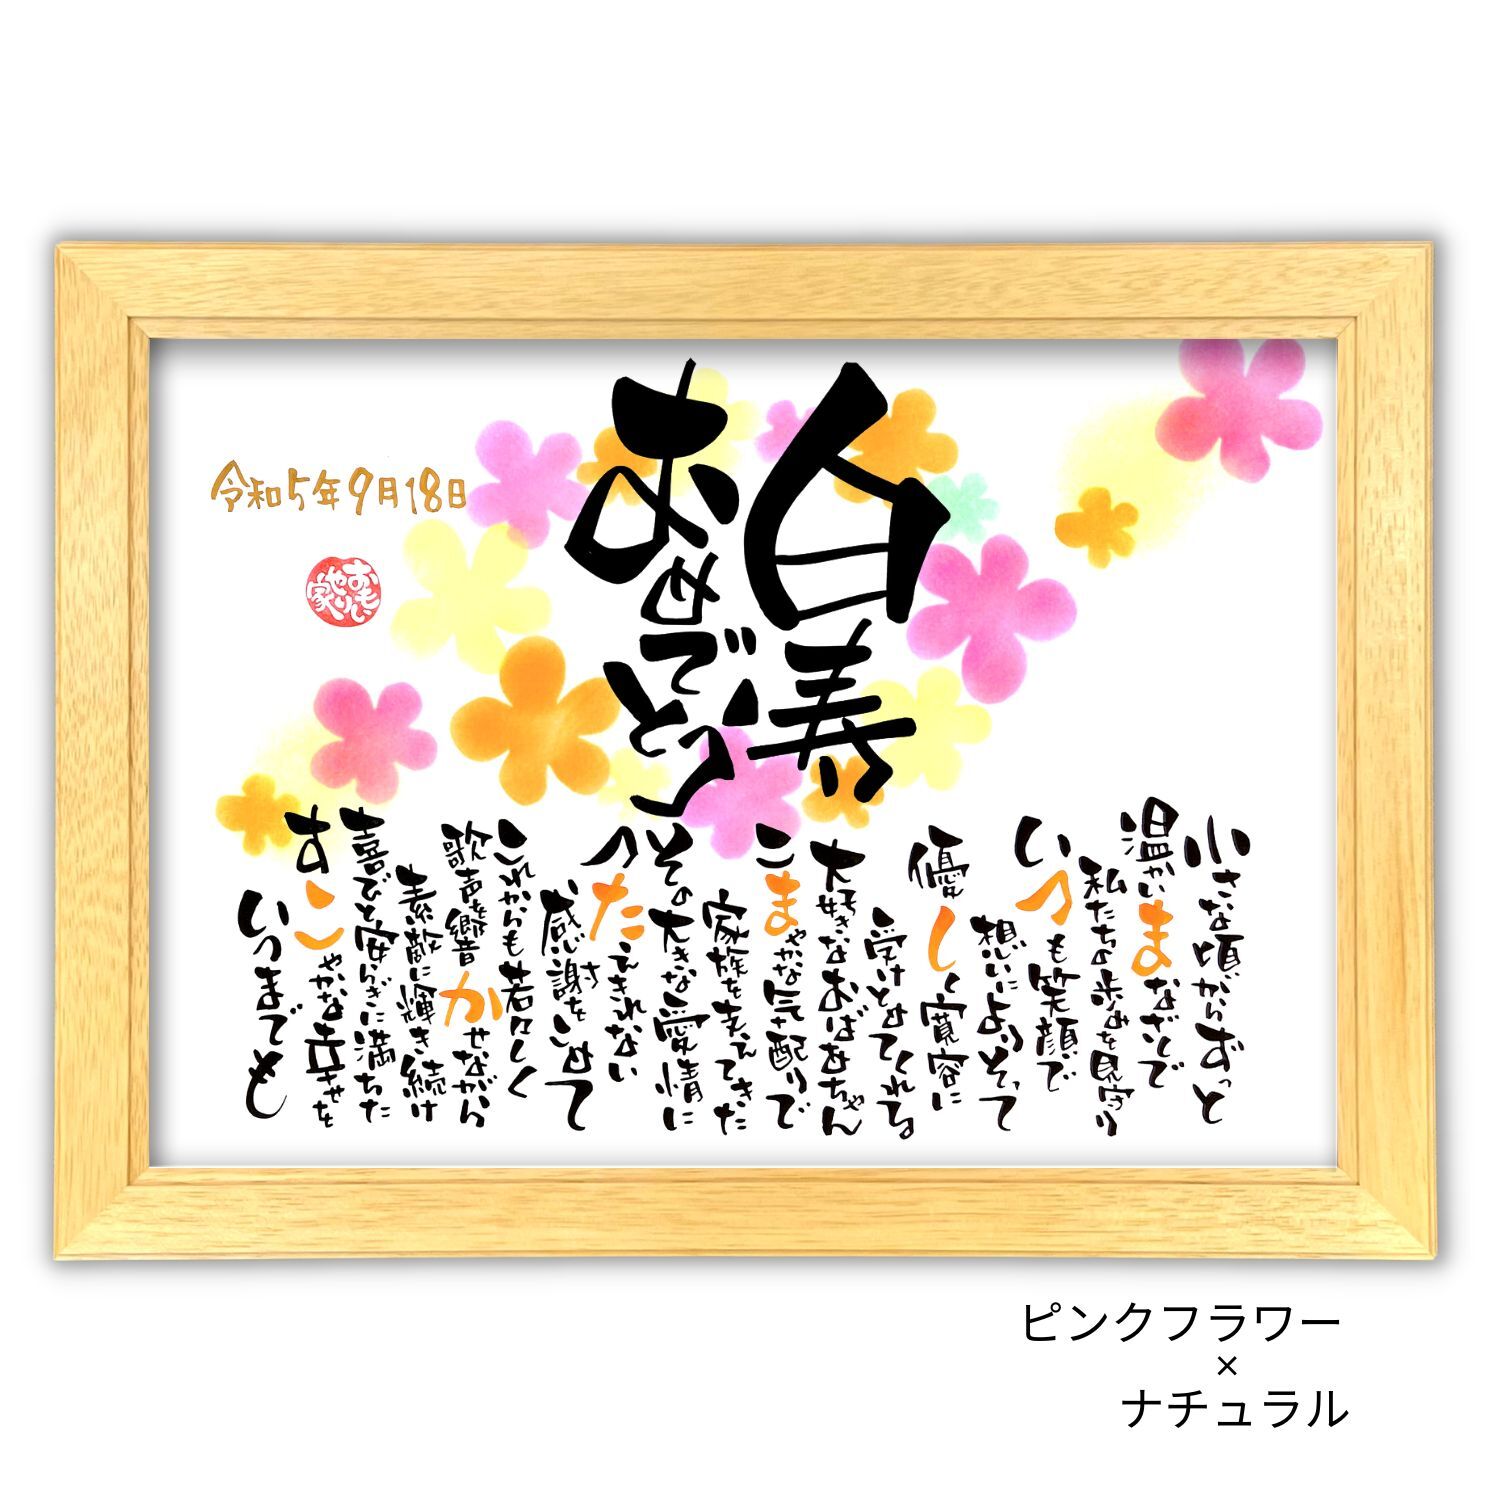 白寿
おめでとう
令和5年9月18日
おもい
やり
家
小さな頃からずっと
温かいまなざしで
私たちの歩みを見守り
いつも笑顔で
想いによりそって
優しく寛容に
受けとめてくれる
大好きなおばあちゃん
こまやかな気配りで
家族を支えてきた
その大きな愛情に
つたえきれない
感謝をこめて
これからも若々しく
歌声を響かせながら
素敵に輝き続け
喜びと安らぎに満ちた
すこやかな幸せを
いつまでも
ピンクフラワー
×
ナチュラル